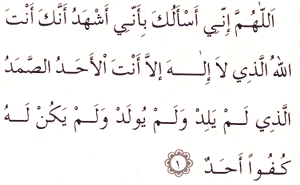 اَللّٰهُمَّ إِنِّي أَسْأَلُكَ بِأَنِّي أَشْهَدُ أَنَّكَ أَنْتَ
اللهُ الَّذِي لاَ إِلٰـــهَ إِلاَّ أَنْتَ الْأَحَدُ الصَّمَدُ
الَّذِي لَـمْ يَلِدْ وَلَـمْ يُولَدْ وَلَـمْ يَكُنْ لَـهُ
كُفُواً أَحَدٌ ١